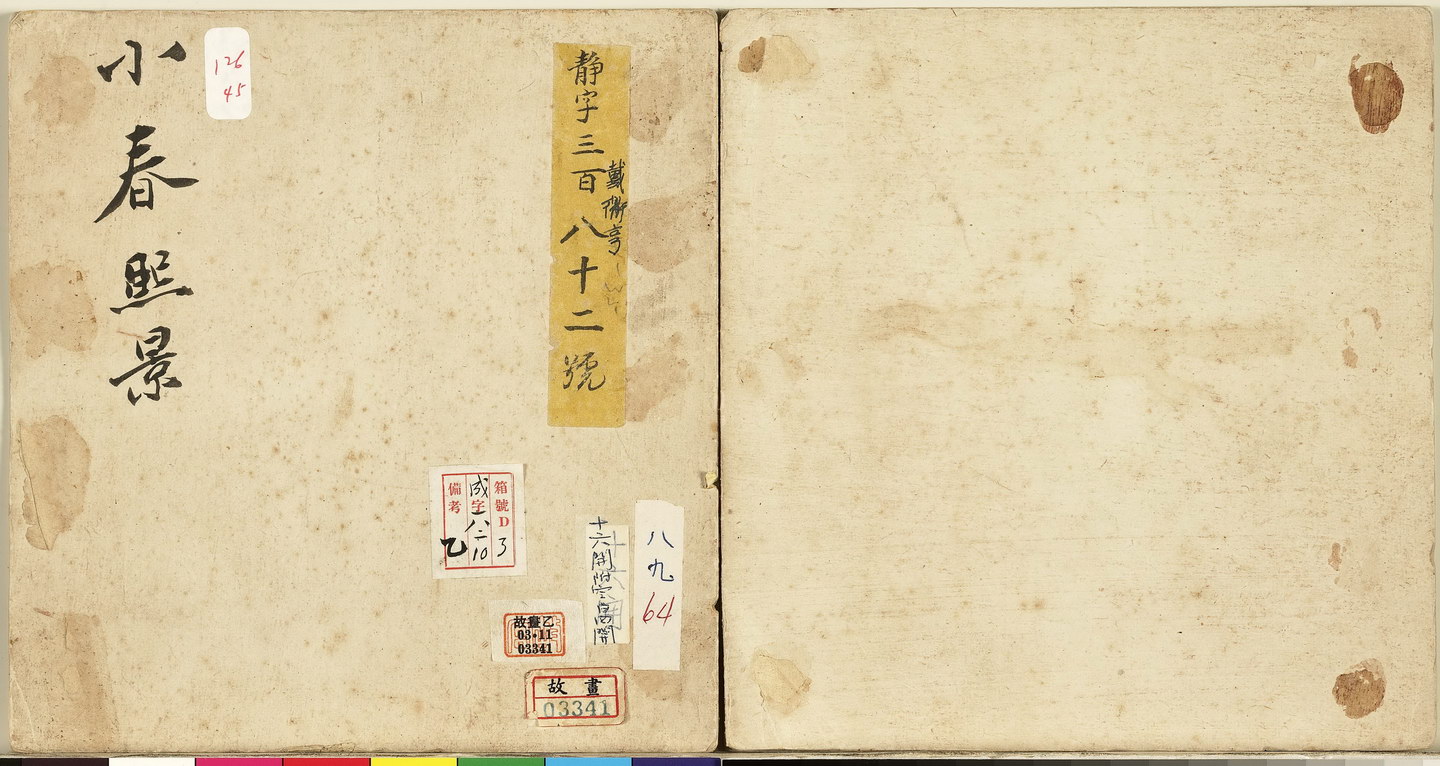 小春熙景
126
45
静字三百八十二號
戴衢亨
箱號D3
成字一八二10
備考乙
十六開附空
八九
64
故畫乙
03-11
03341
故畫
03341